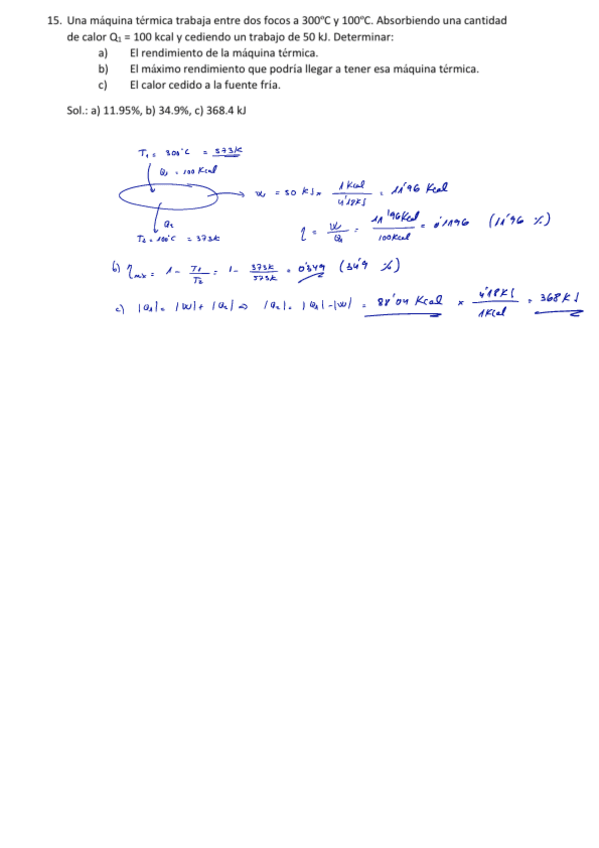 15. Una máquina térmica trabaja entre dos focos a 300ºC y 100ºC. Absorbiendo una cantidad
de calor Q₁ = 100 kcal y cediendo un trabajo de 50 kJ. Determinar:
a) El rendimiento de la máquina térmica.
b) El máximo rendimiento que podría llegar a tener esa máquina térmica.
c) El calor cedido a la fuente fría.
Sol.: a) 11.95%, b) 34.9%, c) 368.4 kJ
T₁ = 300°C = 573K
Q₁ = 100 Kcal
W = 50 KJ × 1 Kcal / 4'18KJ = 11'96 Kcal
Q₂
T₂ = 100°C = 373K
η = W / Q₁ = 11'96 Kcal / 100 Kcal = 0'1196 (11'96 %)
b) η max = 1 - T₁ / T₂ = 1 - 373K / 573K = 0'349 (34'9 %)
c) |Q₁| = |W| + |Q₂| ⇒ |Q₂| = |Q₁| - |W| = 88'04 Kcal × 4'18KJ / 1Kcal = 368KJ